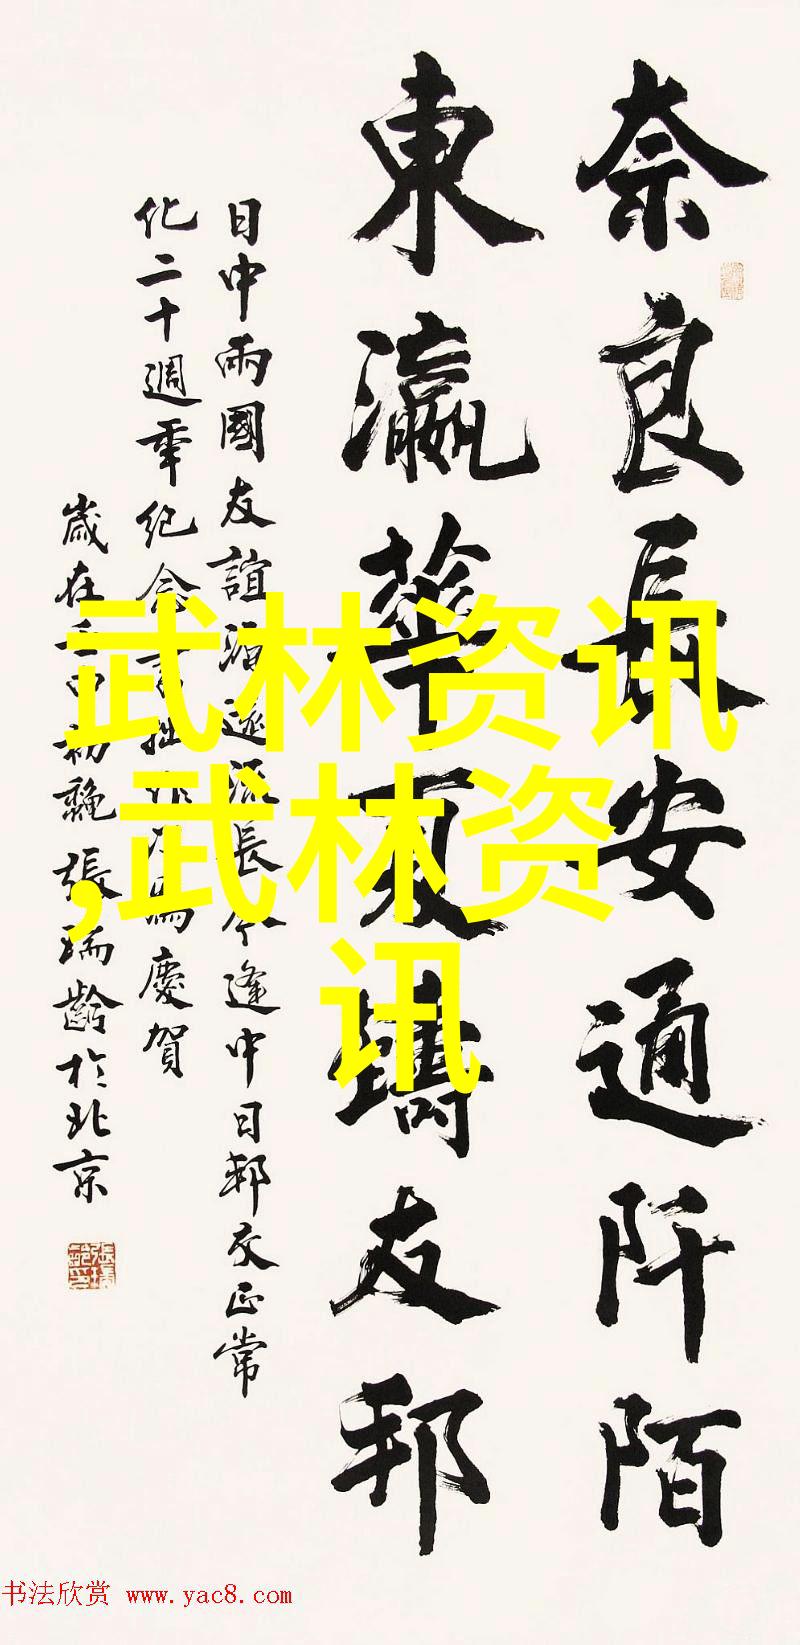 奈良長安通阡陌
東瀛華夏鑄友邦
日中兩國友誼源遠流長今逢中日邦交正常
化二十週年紀念書拙作以為慶賀
歲在壬申初龝張瑞齡於北京
武林资讯
,武林资
讯
书法欣赏 www.yac8.com